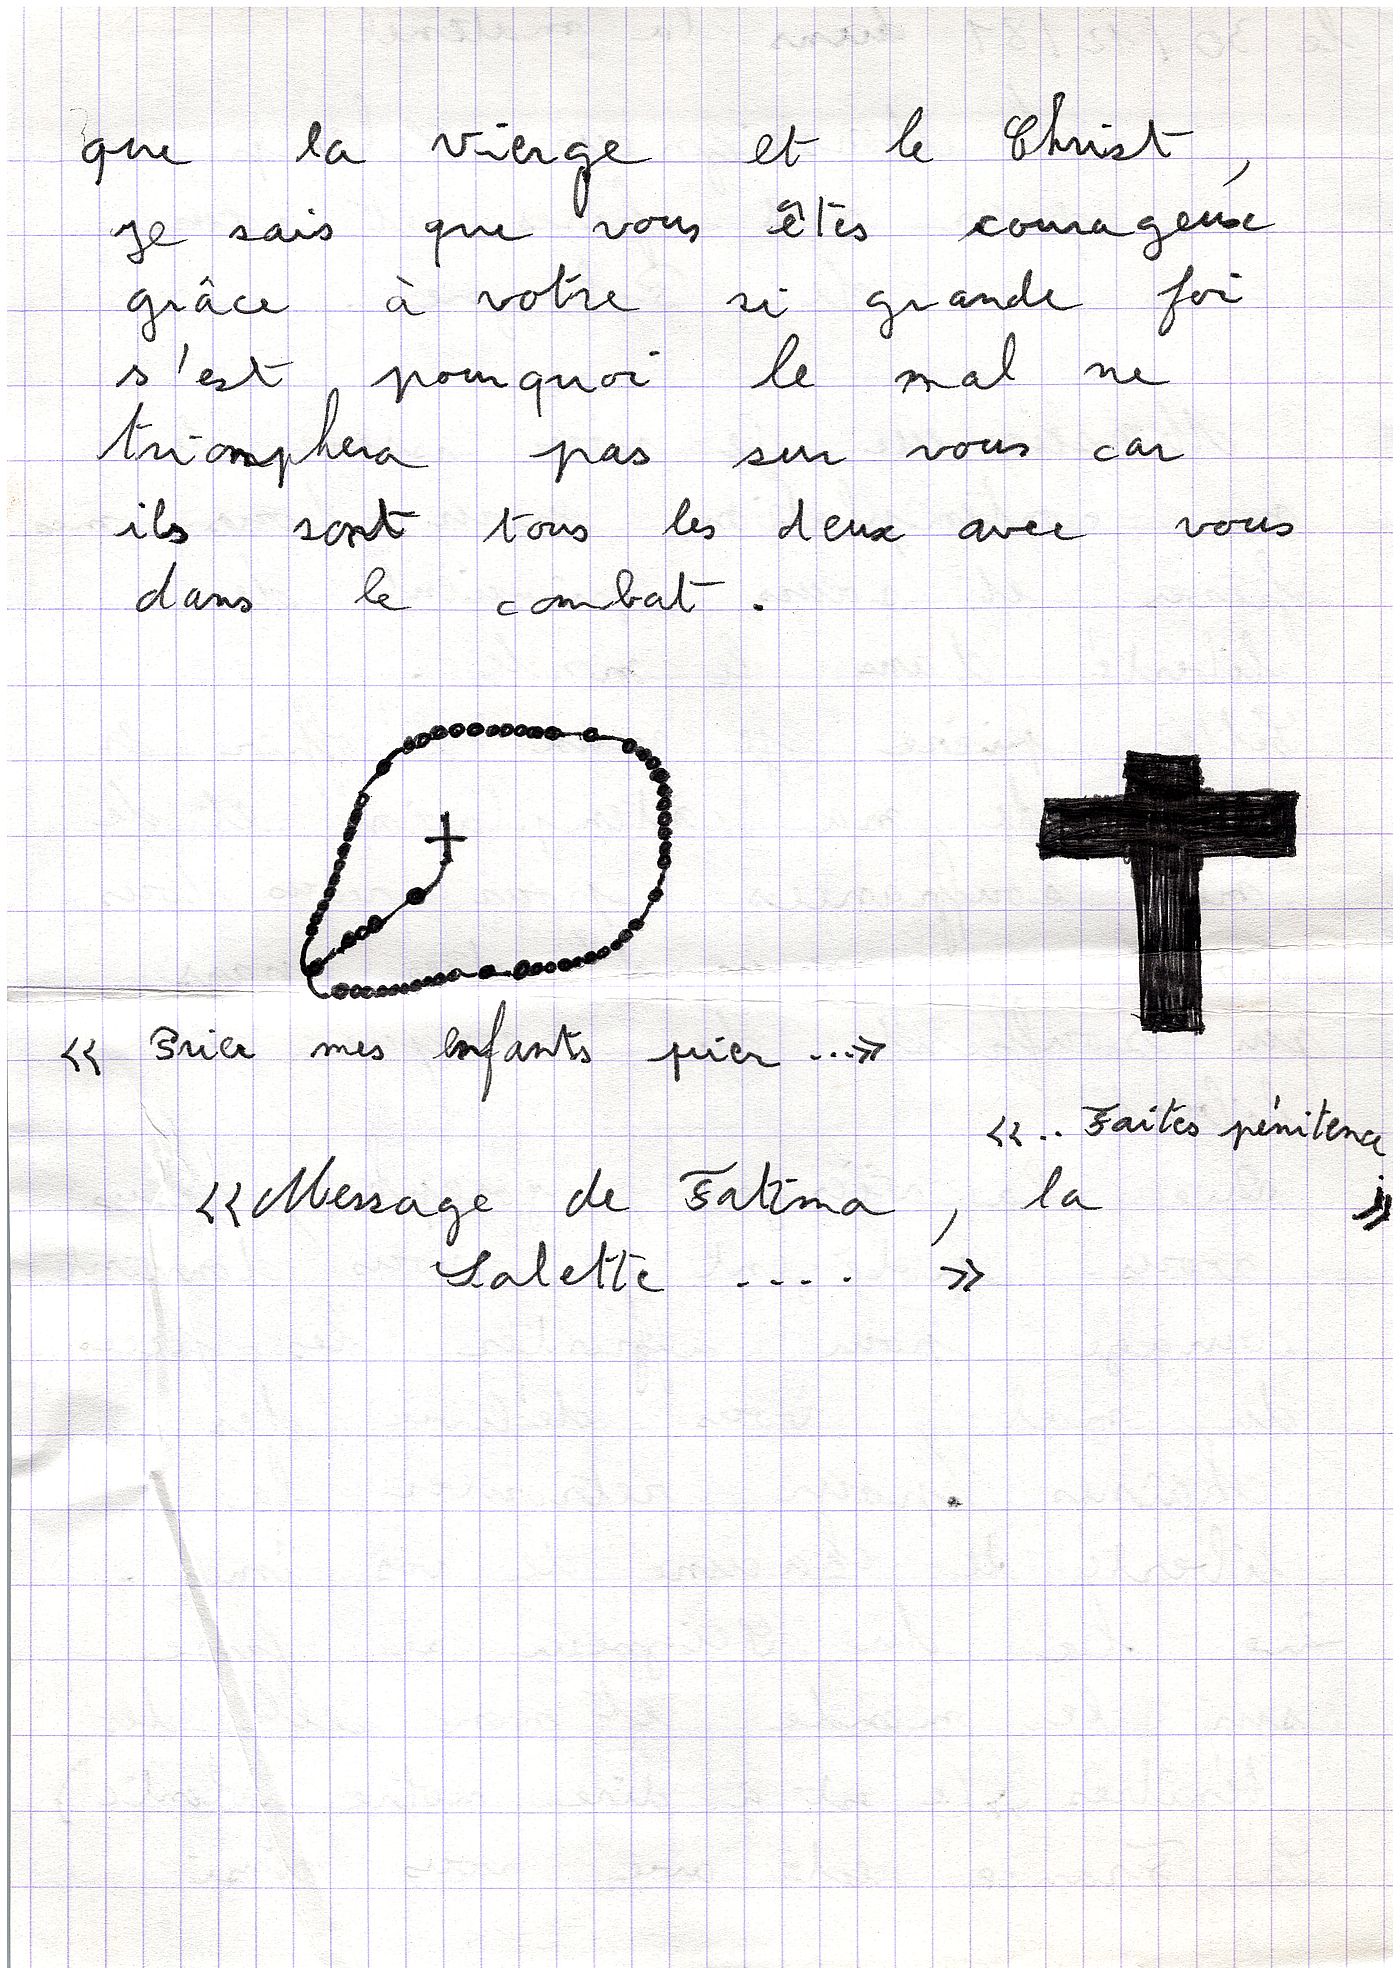 que la vierge et le Christ,
je sais que vous êtes courageux
grâce à votre si grande foi
s'est pourquoi le mal ne
triomphera pas sur vous car
ils sont tous les deux avec vous
dans le combat.
<< Prier mes enfants prier ...>>
<<.. Faites pénitence
<<Message de Fatima, la >>
Salette .... >>